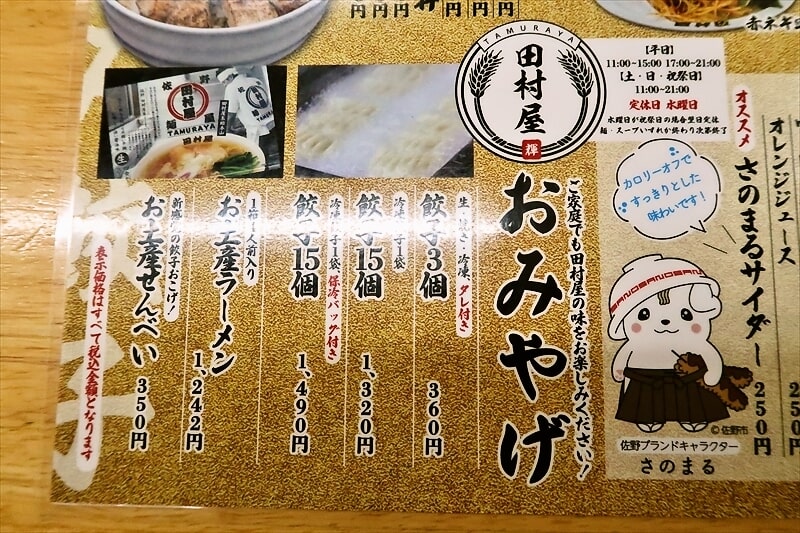 円円円
円円円
赤ネギ
TAMURAYA
田村屋
輝
【平日】
11:00~15:00 17:00~21:00
【土・日・祝祭日】
11:00~21:00
定休日 水曜日
水曜日が祝祭日の場合翌日定休
麺・スープいずれか終わり次第終了
オレンジジュース
250円
オススメ
さのまるサイダー
250円
カロリーオフで
すっきりとした
味わいです!
©佐野市
佐野ブランドキャラクター
さのまる
ご家庭でも田村屋の味をお楽しみください!
おみやげ
生・焼き・冷凍、タレ付き
餃子3個
360円
餃子15個
1,320円
保冷バッグ付き
餃子15個
1,490円
1箱1人前入り
お土産ラーメン
1,242円
の餃子おこげ!
お土産せんべい
350円
表示価格はすべて税込金額となります
佐野
田村屋
TAMURAYA
麺屋
田村屋
生